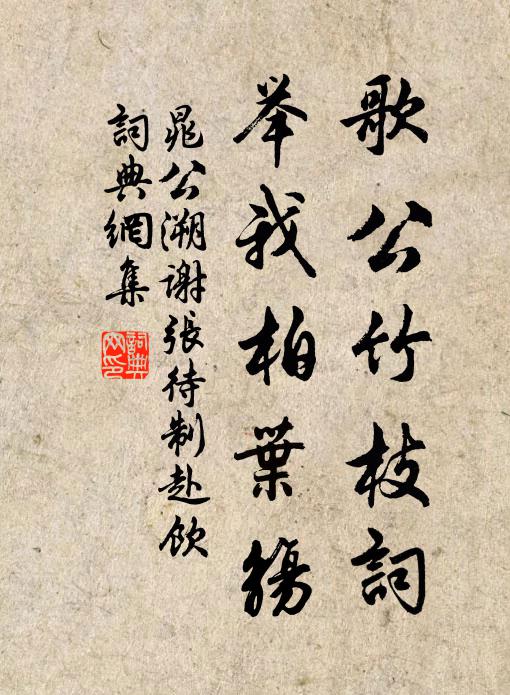 歌公竹枝詞
举我柏葉觴
晁公溯谢張待制赴飲
詞典網集
詞典网印